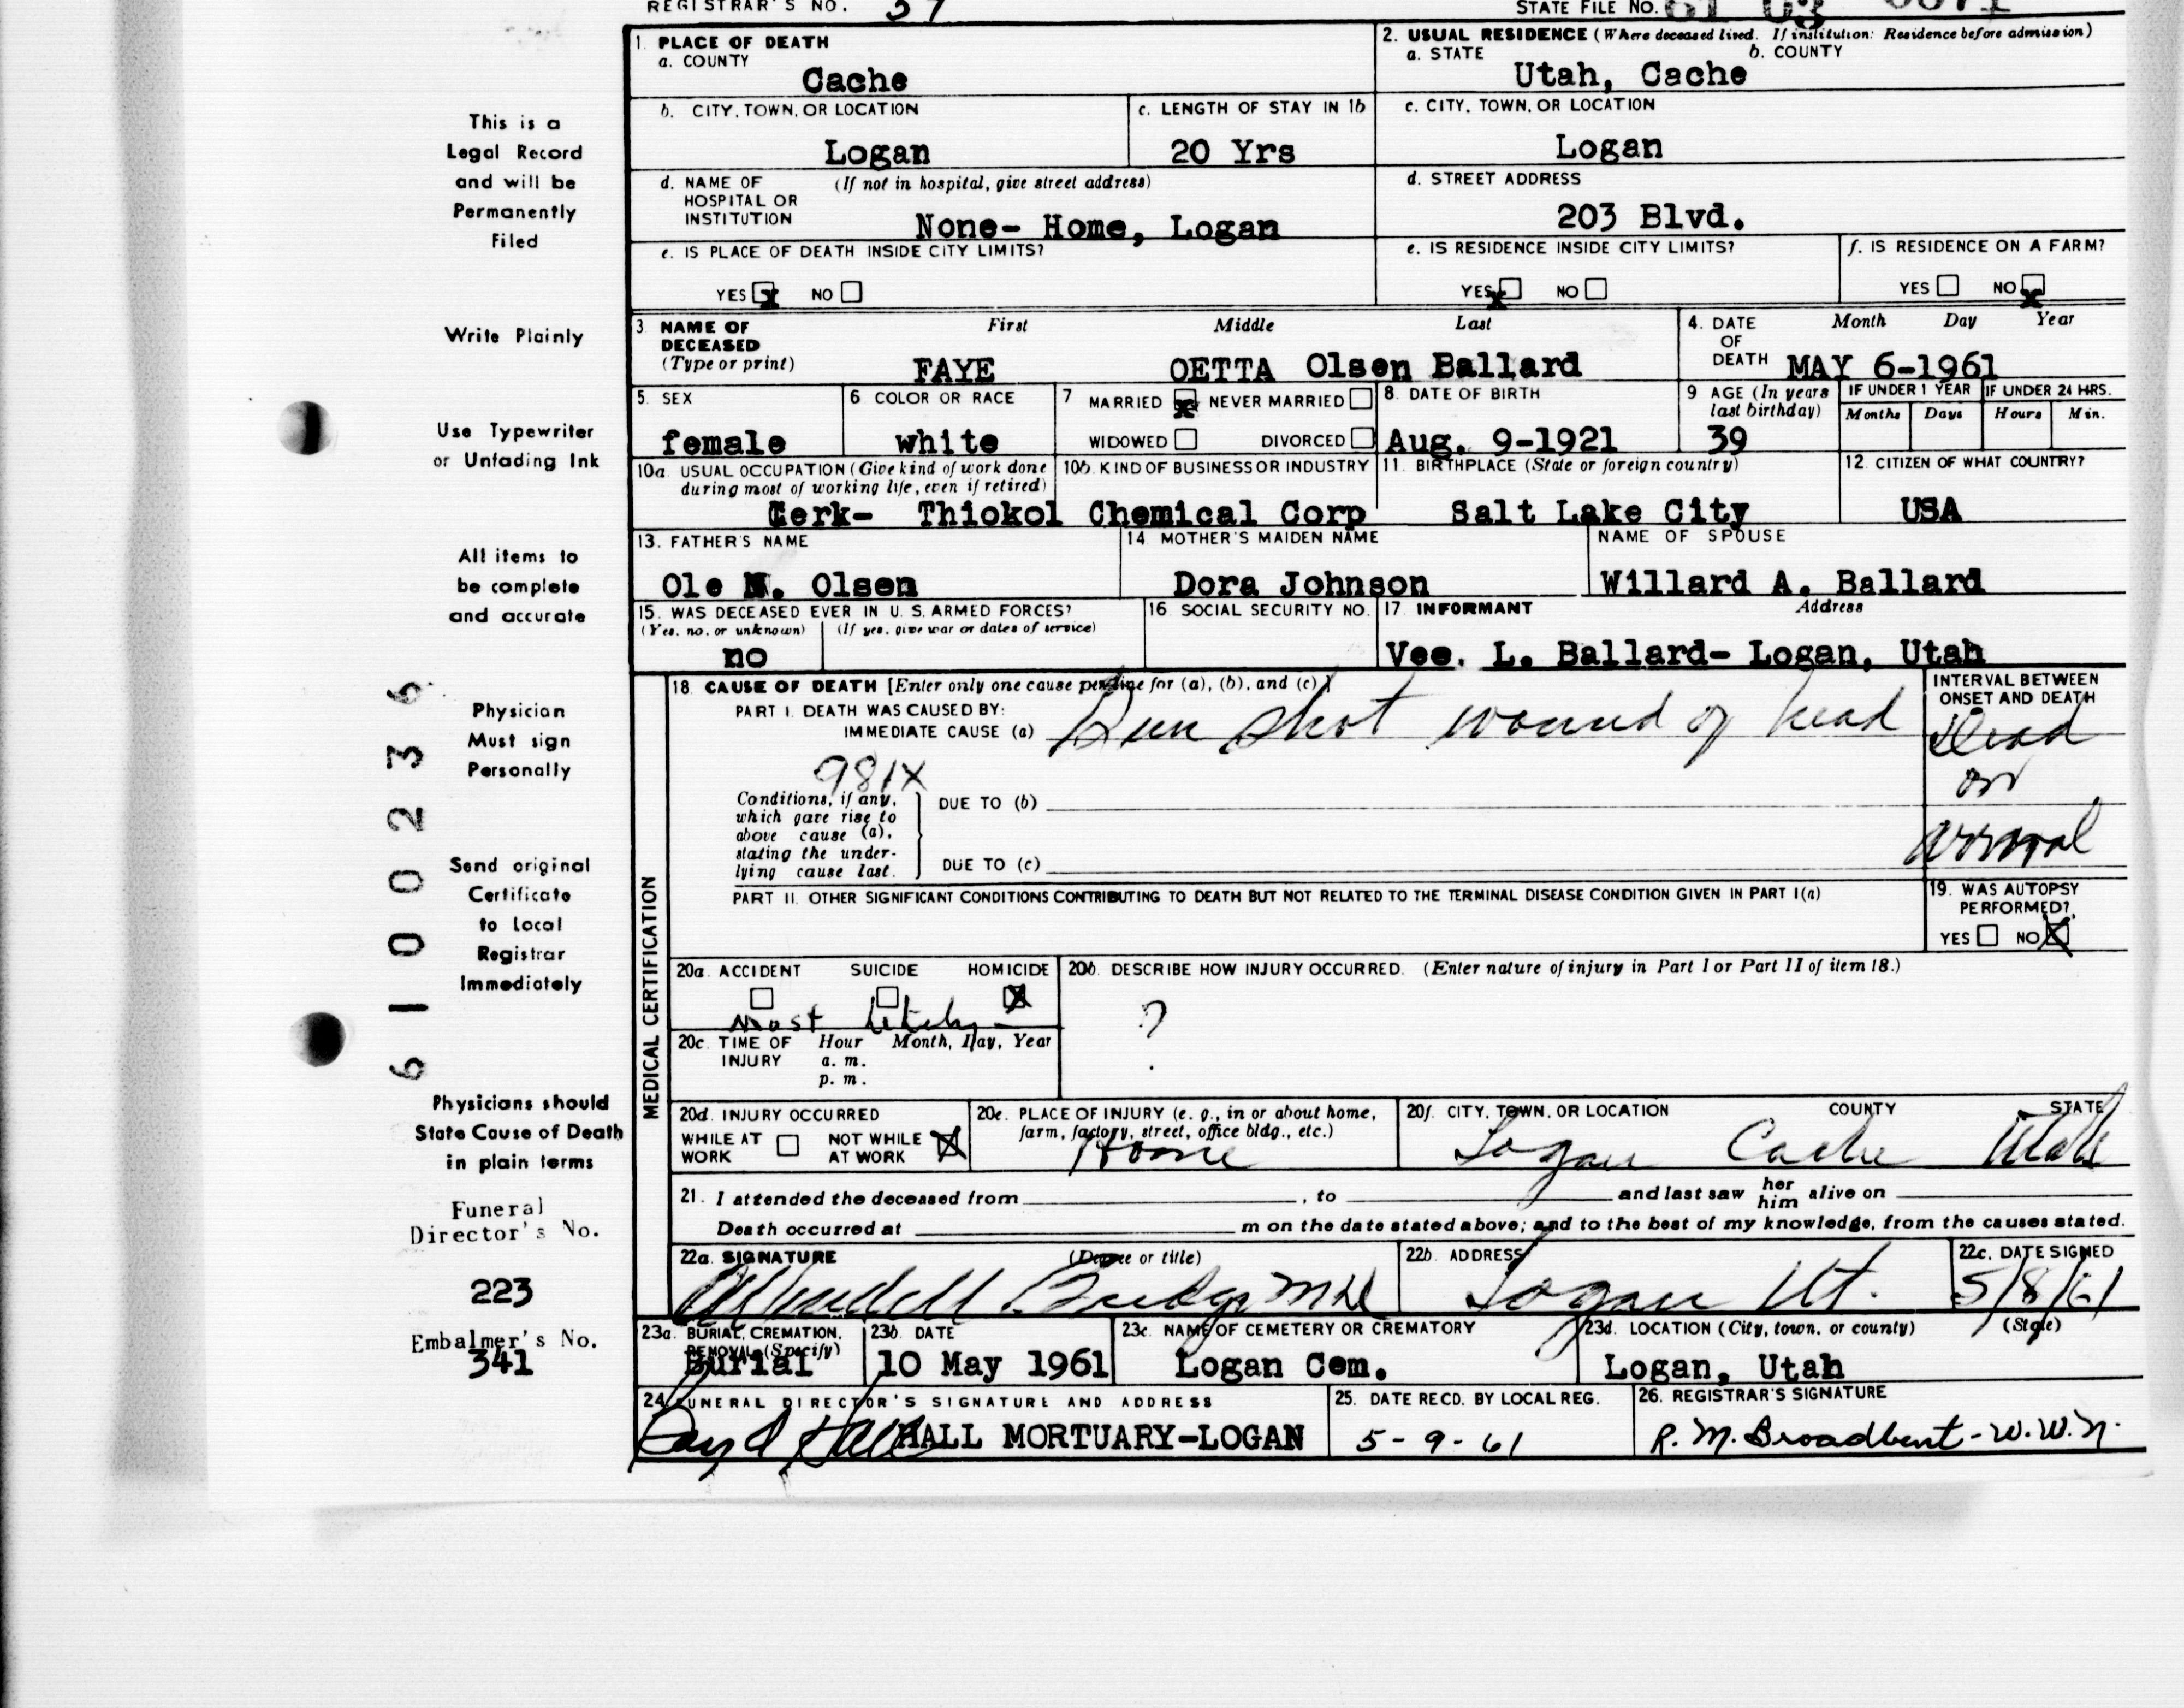 REGISTRAR'S NO. 37
STATE FILE NO. 61 03
1. PLACE OF DEATH
a. COUNTY
Cache
2. USUAL RESIDENCE (Where deceased lived. If institution: Residence before admission)
a. STATE b. COUNTY
Utah, Cache
b. CITY, TOWN, OR LOCATION
Logan
c. LENGTH OF STAY IN 1b
20 Yrs
c. CITY, TOWN, OR LOCATION
Logan
d. NAME OF HOSPITAL OR INSTITUTION (If not in hospital, give street address)
None- Home, Logan
d. STREET ADDRESS
203 Blvd.
e. IS PLACE OF DEATH INSIDE CITY LIMITS?
YES x NO
e. IS RESIDENCE INSIDE CITY LIMITS?
YES x NO
f. IS RESIDENCE ON A FARM?
YES NO x
3. NAME OF DECEASED (Type or print)
First Middle Last
FAYE OETTA Olsen Ballard
4. DATE OF DEATH Month Day Year
MAY 6-1961
5. SEX
female
6 COLOR OR RACE
white
7 MARRIED x NEVER MARRIED
WIDOWED DIVORCED
8. DATE OF BIRTH
Aug. 9-1921
9 AGE (In years last birthday)
39
IF UNDER 1 YEAR IF UNDER 24 HRS.
Months Days Hours Min.
10a. USUAL OCCUPATION (Give kind of work done during most of working life, even if retired)
10b. KIND OF BUSINESS OR INDUSTRY
Cerk- Thiokol Chemical Corp
11. BIRTHPLACE (State or foreign country)
Salt Lake City
12. CITIZEN OF WHAT COUNTRY?
USA
13. FATHER'S NAME
Ole N. Olsen
14. MOTHER'S MAIDEN NAME
Dora Johnson
NAME OF SPOUSE
Willard A. Ballard
15. WAS DECEASED EVER IN U. S. ARMED FORCES?
(Yes, no, or unknown) (If yes, give war or dates of service)
no
16. SOCIAL SECURITY NO.
17. INFORMANT Address
Vee. L. Ballard- Logan, Utah
MEDICAL CERTIFICATION
18. CAUSE OF DEATH [Enter only one cause per line for (a), (b), and (c).]
PART I. DEATH WAS CAUSED BY:
IMMEDIATE CAUSE (a) Gun shot wound of head
981X
Conditions, if any, which gave rise to above cause (a), stating the under-lying cause last.
DUE TO (b)
DUE TO (c)
INTERVAL BETWEEN ONSET AND DEATH
Dead
on
arrival
PART II. OTHER SIGNIFICANT CONDITIONS CONTRIBUTING TO DEATH BUT NOT RELATED TO THE TERMINAL DISEASE CONDITION GIVEN IN PART I(a)
19. WAS AUTOPSY PERFORMED?
YES NO X
20a. ACCIDENT SUICIDE HOMICIDE X
Most likely -
20b. DESCRIBE HOW INJURY OCCURRED. (Enter nature of injury in Part I or Part II of item 18.)
?
20c. TIME OF INJURY Hour Month, Day, Year
a. m.
p. m.
20d. INJURY OCCURRED
WHILE AT WORK NOT WHILE AT WORK X
20e. PLACE OF INJURY (e. g., in or about home, farm, factory, street, office bldg., etc.)
Home
20f. CITY, TOWN, OR LOCATION COUNTY STATE
Logan Cache Utah
21. I attended the deceased from , to and last saw her him alive on
Death occurred at m on the date stated above; and to the best of my knowledge, from the causes stated.
22a. SIGNATURE (Degree or title)
Wendell Budge MD
22b. ADDRESS
Logan Ut.
22c. DATE SIGNED
5/8/61
23a. BURIAL, CREMATION, REMOVAL (Specify)
Burial
23b. DATE
10 May 1961
23c. NAME OF CEMETERY OR CREMATORY
Logan Cem.
23d. LOCATION (City, town, or county) (State)
Logan, Utah
24. FUNERAL DIRECTOR'S SIGNATURE AND ADDRESS
Hall HALL MORTUARY-LOGAN
25. DATE RECD. BY LOCAL REG.
5-9-61
26. REGISTRAR'S SIGNATURE
R. M. Broadbent - W. W. N.
This is a
Legal Record
and will be
Permanently
Filed
Write Plainly
Use Typewriter
or Unfading Ink
All items to
be complete
and accurate
Physician
Must sign
Personally
Send original
Certificate
to Local
Registrar
Immediately
Physicians should
State Cause of Death
in plain terms
Funeral
Director's No.
223
Embalmer's No.
341
6100236